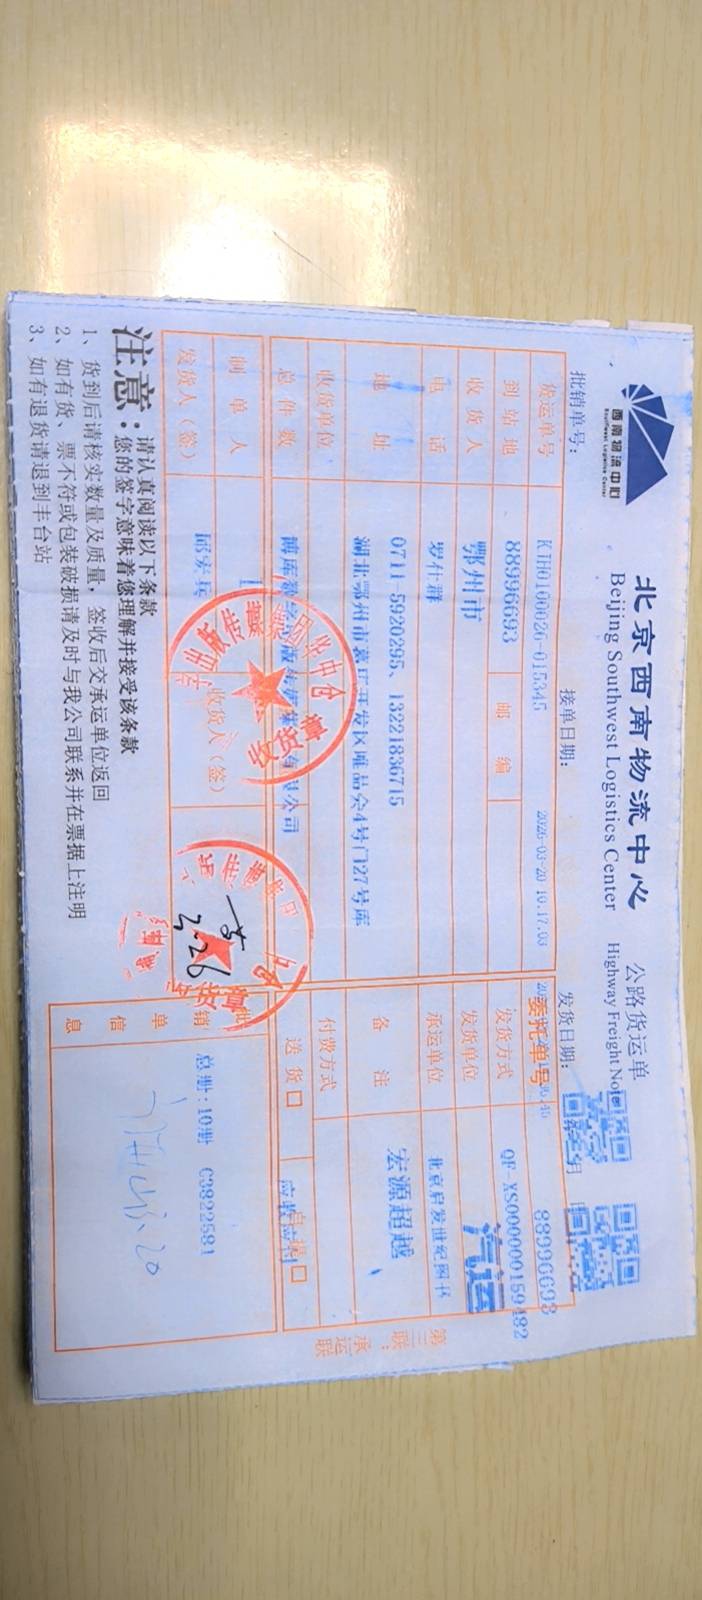 西南物流中心
Southwest Logistics Center
北京西南物流中心
Beijing Southwest Logistics Center
公路货运单
Highway Freight Note
批销单号：
接单日期：
2026-03-20 10.17.03
发货日期：
货运单号
KTH0100026-015345
委托单号
88996693
到站地
88996693
邮编
发货方式
QF-XS000000159482
收货人
鄂州市
发货单位
汽运
电话
罗仕群
承运单位
北京启发世纪图书
地址
0711-5920295、13221836715
湖北鄂州市葛店开发区唯品会4号门27号库
备注
宏源超越
收货单位
付费方式
总件数
送货口
自提口
应收应付
制单人
1
发货人（签）
邱宏兵
收货人（签）
出版传媒集团华中仓
收货章
2.26
批销单信息
总册：10册 C3822581
第三联：承运联
注意：
请认真阅读以下条款
您的签字意味着您理解并接受该条款
1、货到后请核实数量及质量，签收后交承运单位返回
2、如有货、票不符或包装破损请及时与我公司联系并在票据上注明
3、如有退货请退到丰台站